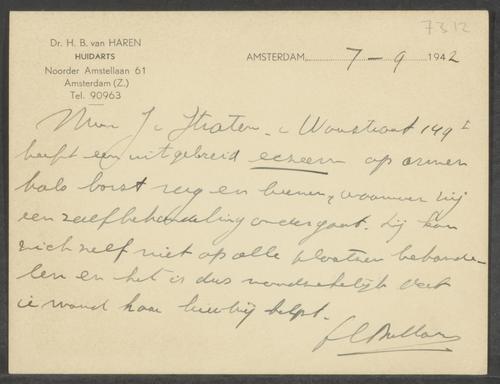 7312
Dr. H. B. van HAREN
HUIDARTS
Noorder Amstellaan 61
Amsterdam (Z.)
Tel. 90963
AMSTERDAM 7-9 1942
Mevr J v Straten - v Woustraat 149 I
heeft een uitgebreid eczeem op armen
hals borst rug en benen, waarvoor zij
een zalfbehandeling ondergaat. Zij kan
zich zelf niet op alle plaatsen behande-
len en het is dus noodzakelijk dat
iemand haar hierbij helpt.